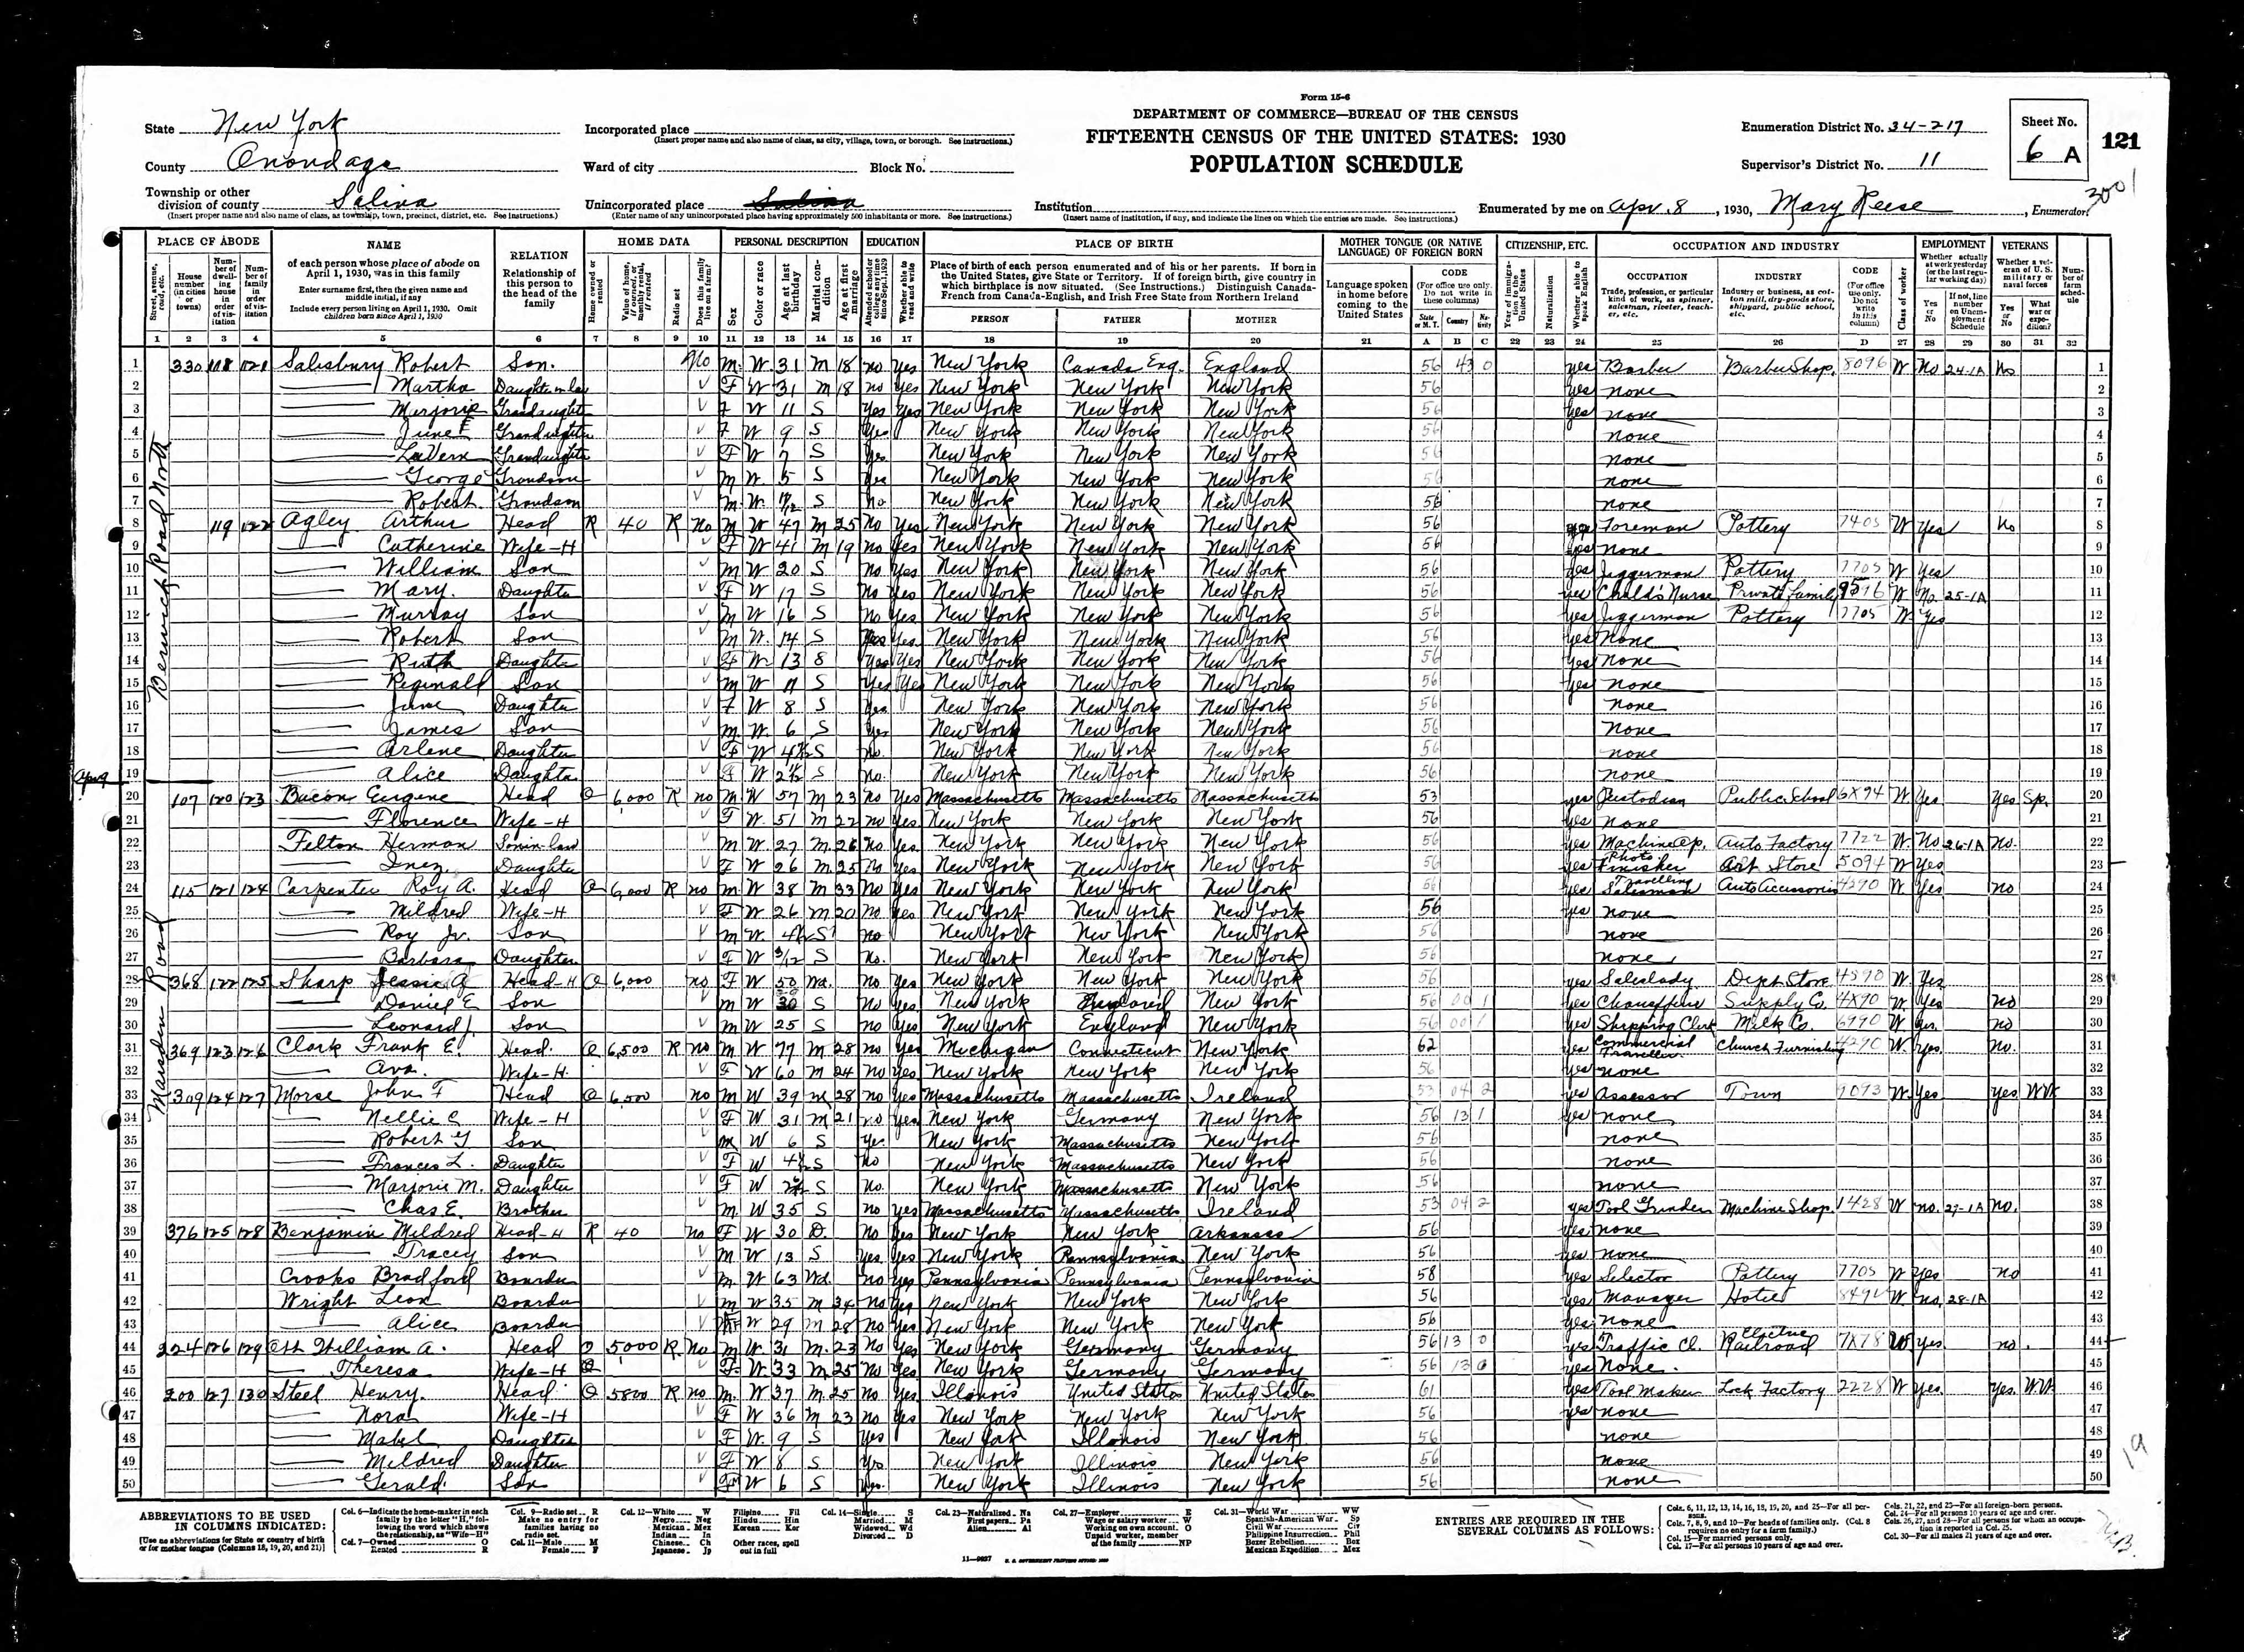 Form 15-6
DEPARTMENT OF COMMERCE—BUREAU OF THE CENSUS
FIFTEENTH CENSUS OF THE UNITED STATES: 1930
POPULATION SCHEDULE
State New York
County Onondaga
Township or other division of county Salina
(Insert proper name and also name of class, as township, town, precinct, district, etc. See instructions.)
Incorporated place
(Insert proper name and also name of class, as city, village, town, or borough. See instructions.)
Ward of city Block No.
Unincorporated place Salina
(Enter name of any unincorporated place having approximately 500 inhabitants or more. See instructions.)
Institution
(Insert name of institution, if any, and indicate the lines on which the entries are made. See instructions.)
Enumeration District No. 34-217
Supervisor's District No. 11
Sheet No. 6 A
121
3001
Enumerated by me on Apr. 8, 1930, Mary Reese, Enumerator.
PLACE OF ABODE NAME RELATION HOME DATA PERSONAL DESCRIPTION EDUCATION PLACE OF BIRTH MOTHER TONGUE (OR NATIVE LANGUAGE) OF FOREIGN BORN CITIZENSHIP, ETC. OCCUPATION AND INDUSTRY EMPLOYMENT VETERANS
1 2 3 4 5 6 7 8 9 10 11 12 13 14 15 16 17 18 19 20 21 A B C 22 23 24 25 26 D 27 28 29 30 31 32
Berwick Road North
1 330 118 121 Salesbury Robert Son No M W 31 M 18 no Yes New York Canada Eng. England 56 43 0 yes Barber Barber Shop 8096 W No 24-1A No 1
2 Martha Daughter in law F W 31 M 18 no Yes New York New York New York 56 yes none 2
3 Marjorie Grandaughter F W 11 S Yes Yes New York New York New York 56 yes none 3
4 June E Grandaughter F W 9 S Yes New York New York New York 56 none 4
5 LaVern Grandaughter F W 7 S Yes New York New York New York 56 none 5
6 George Grandson M W 5 S Yes New York New York New York 56 none 6
7 Robert Grandson M W S no New York New York New York 56 none 7
8 119 122 Agley Arthur Head R 40 R No M W 47 M 25 No Yes New York New York New York 56 yes Foreman Pottery 7405 W Yes No 8
9 Catherine Wife-H F W 41 M 19 no Yes New York New York New York 56 yes none 9
10 William Son M W 20 S No Yes New York New York New York 56 yes Jiggerman Pottery 7705 W Yes 10
11 Mary Daughter F W 17 S No Yes New York New York New York 56 yes Child's Nurse Private Family 9596 W No 25-1A 11
12 Murray Son M W 16 S No Yes New York New York New York 56 yes Jiggerman Pottery 7705 W Yes 12
13 Robert Son M W 14 S Yes Yes New York New York New York 56 yes None 13
14 Ruth Daughter F W 13 S Yes Yes New York New York New York 56 yes None 14
15 Reginald Son M W 11 S Yes Yes New York New York New York 56 yes none 15
16 June Daughter F W 8 S Yes New York New York New York 56 none 16
17 James Son M W 6 S Yes New York New York New York 56 None 17
18 Arlene Daughter F W S No New York New York New York 56 none 18
Apr 9
19 Alice Daughter F W S No New York New York New York 56 none 19
Marsden Road
20 107 120 123 Bacon Eugene Head O 6,000 R no M W 57 M 23 No Yes Massachusetts Massachusetts Massachusetts 53 yes Custodian Public School 6X94 W Yes Yes Sp. 20
21 Florence Wife-H F W 51 M 22 no Yes New York New York New York 56 yes none 21
22 Felton Herman Son in law M W 27 M 26 No Yes New York New York New York 56 yes Machine Op. Auto Factory 7722 W No 26-1A No 22
23 Inez Daughter F W 26 M 25 No Yes New York New York New York 56 yes Photo Finisher Art Store 5094 W Yes 23
24 115 121 124 Carpenter Roy A. Head O 6,000 R no M W 38 M 33 No Yes New York New York New York 56 yes Travelling Salesman Auto Accessories 4290 W Yes no 24
25 Mildred Wife-H F W 26 M 20 No Yes New York New York New York 56 yes none 25
26 Roy Jr. Son M W S no New York New York New York 56 none 26
27 Barbara Daughter F W 3/12 S no New York New York New York 56 none 27
28 368 122 125 Sharp Jessie A Head-H O 6,000 no F W 50 Wd. no Yes New York New York New York 56 yes Saleslady Dept Store 4590 W Yes 28
29 Daniel E Son M W 30 S No Yes New York England New York 56 00 1 yes Chauffeur Supply Co. 4X90 W Yes no 29
30 Leonard J. Son M W 25 S no Yes New York England New York 56 00 1 yes Shipping Clerk Milk Co. 6990 W Yes no 30
31 369 123 126 Clark Frank E. Head O 6,500 R no M W 77 M 28 no Yes Michigan Connecticut New York 62 yes Commercial Traveller Church Furnishing 4290 W Yes No 31
32 Ava Wife-H F W 60 M 24 no Yes New York New York New York 56 yes none 32
33 309 124 127 Morse John F Head O 6,500 no M W 39 M 28 no Yes Massachusetts Massachusetts Ireland 53 04 2 yes Assessor Town 9093 W Yes Yes WW 33
34 Nellie C Wife-H F W 31 M 21 no Yes New York Germany New York 56 13 1 yes none 34
35 Robert G Son M W 6 S Yes New York Massachusetts New York 56 none 35
36 Frances L. Daughter F W S no New York Massachusetts New York 56 none 36
37 Marjorie M. Daughter F W S No New York Massachusetts New York 56 none 37
38 Chas E. Brother M W 35 S no Yes Massachusetts Massachusetts Ireland 53 04 2 yes Tool Grinder Machine Shop 1428 W no 27-1A no 38
39 376 125 128 Benjamin Mildred Head-H R 40 no F W 30 D. No Yes New York New York Arkansas 56 yes none 39
40 Tracey Son M W 13 S Yes Yes New York Pennsylvania New York 56 yes none 40
41 Crooks Bradford Boarder M W 63 Wd. no Yes Pennsylvania Pennsylvania Pennsylvania 58 yes Selector Pottery 7705 W Yes no 41
42 Wright Leon Boarder M W 35 M 34 no Yes New York New York New York 56 yes Manager Hotel W no 28-1A 42
43 Alice Boarder F W 29 M 28 no Yes New York New York New York 56 yes None 43
44 224 126 129 Ott William A. Head O 5000 R No M W 31 M 23 No Yes New York Germany Germany 56 13 0 yes Traffic Cl. Electric Railroad 7X78 W Yes no 44
45 Theresa Wife-H F W 33 M 25 No Yes New York Germany Germany 56 13 0 yes None 45
46 200 127 130 Steel Henry Head O 5800 R no M W 37 M 25 no Yes Illinois United States United States 61 yes Tool Maker Lock Factory 2228 W Yes Yes WW 46
47 Nora Wife-H F W 36 M 23 no Yes New York New York New York 56 yes none 47
48 Mabel Daughter F W 9 S Yes New York Illinois New York 56 none 48
49 Mildred Daughter F W 8 S Yes New York Illinois New York 56 none 49
50 Gerald Son M W 6 S Yes New York Illinois New York 56 none 50
ABBREVIATIONS TO BE USED IN COLUMNS INDICATED:
[Use no abbreviations for State or country of birth or for mother tongue (Columns 18, 19, 20, and 21)]
ENTRIES ARE REQUIRED IN THE SEVERAL COLUMNS AS FOLLOWS: